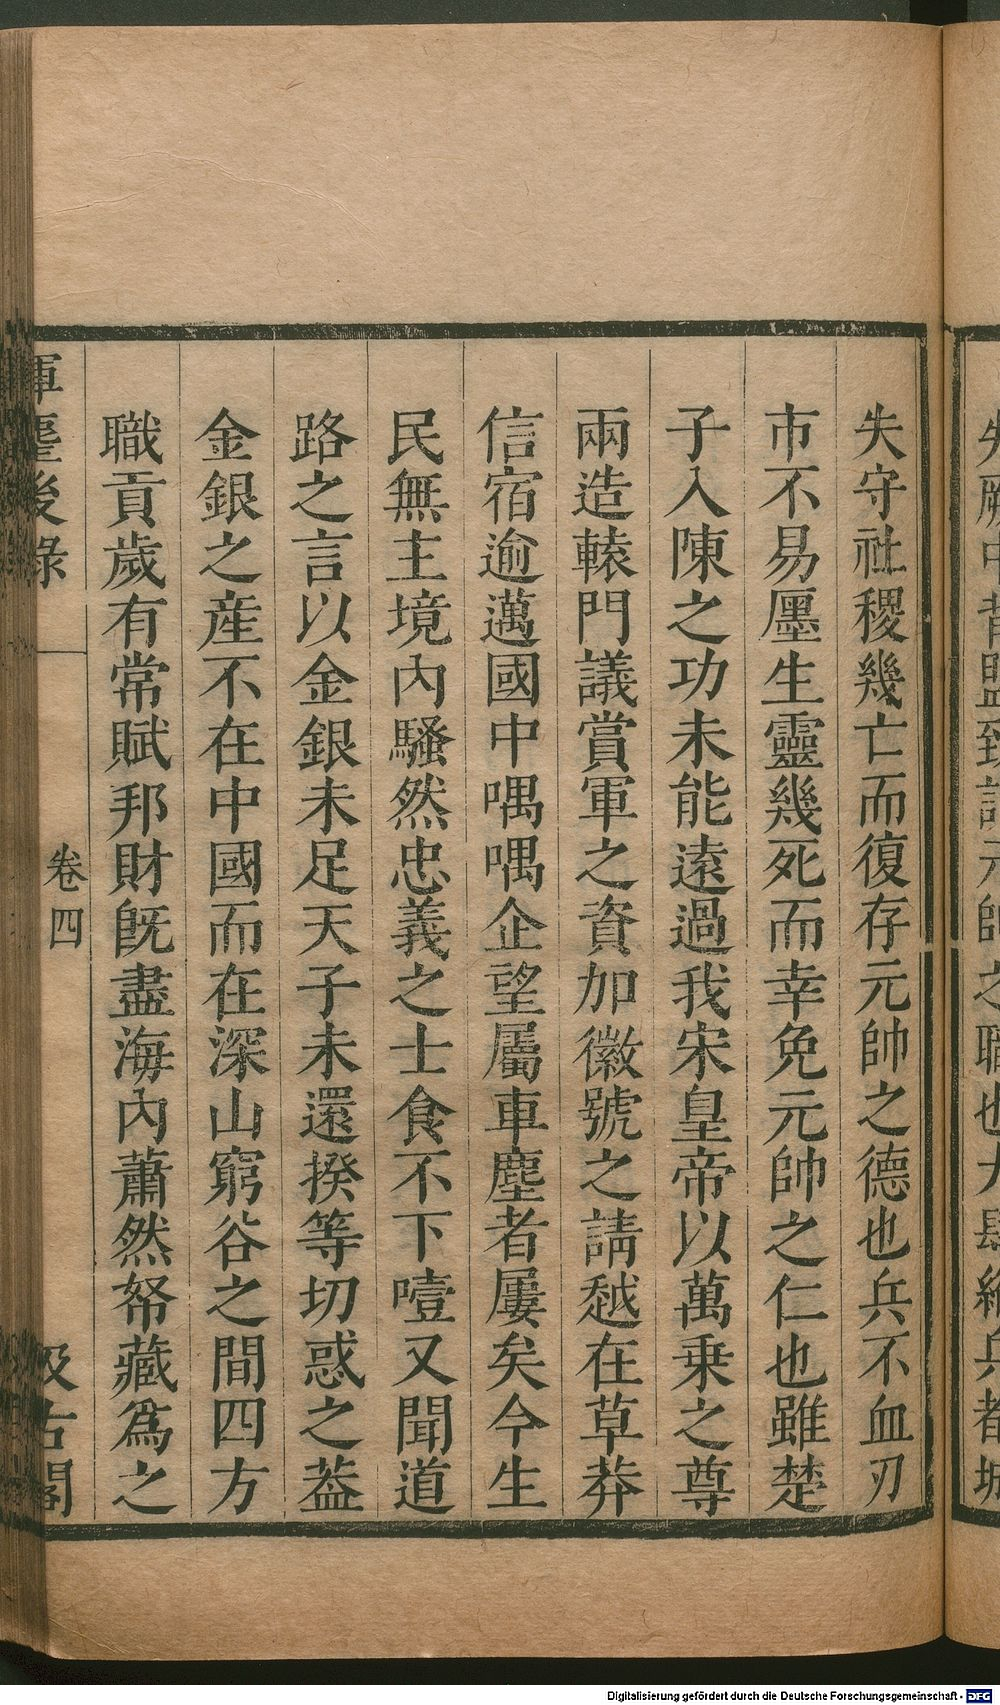 失守社稷幾亡而復存元帥之德也兵不血刃
市不易㕓生靈幾死而幸免元帥之仁也雖楚
子入陳之功未能遠過我宋皇帝以萬乗之尊
兩造轅門議賞軍之資加徽號之請越在草莽
信宿逾邁國中喁喁企望屬車塵者屢矣今生
民無主境內騷然忠義之士食不下噎又聞道
路之言以金銀未足天子未還揆等切惑之葢
金銀之産不在中國而在深山窮谷之間四方
職貢歲有常賦邦財旣盡海內蕭然帑藏爲之
揮麈後錄
卷四
汲古閣
Digitalisierung gefördert durch die Deutsche Forschungsgemeinschaft - DFG